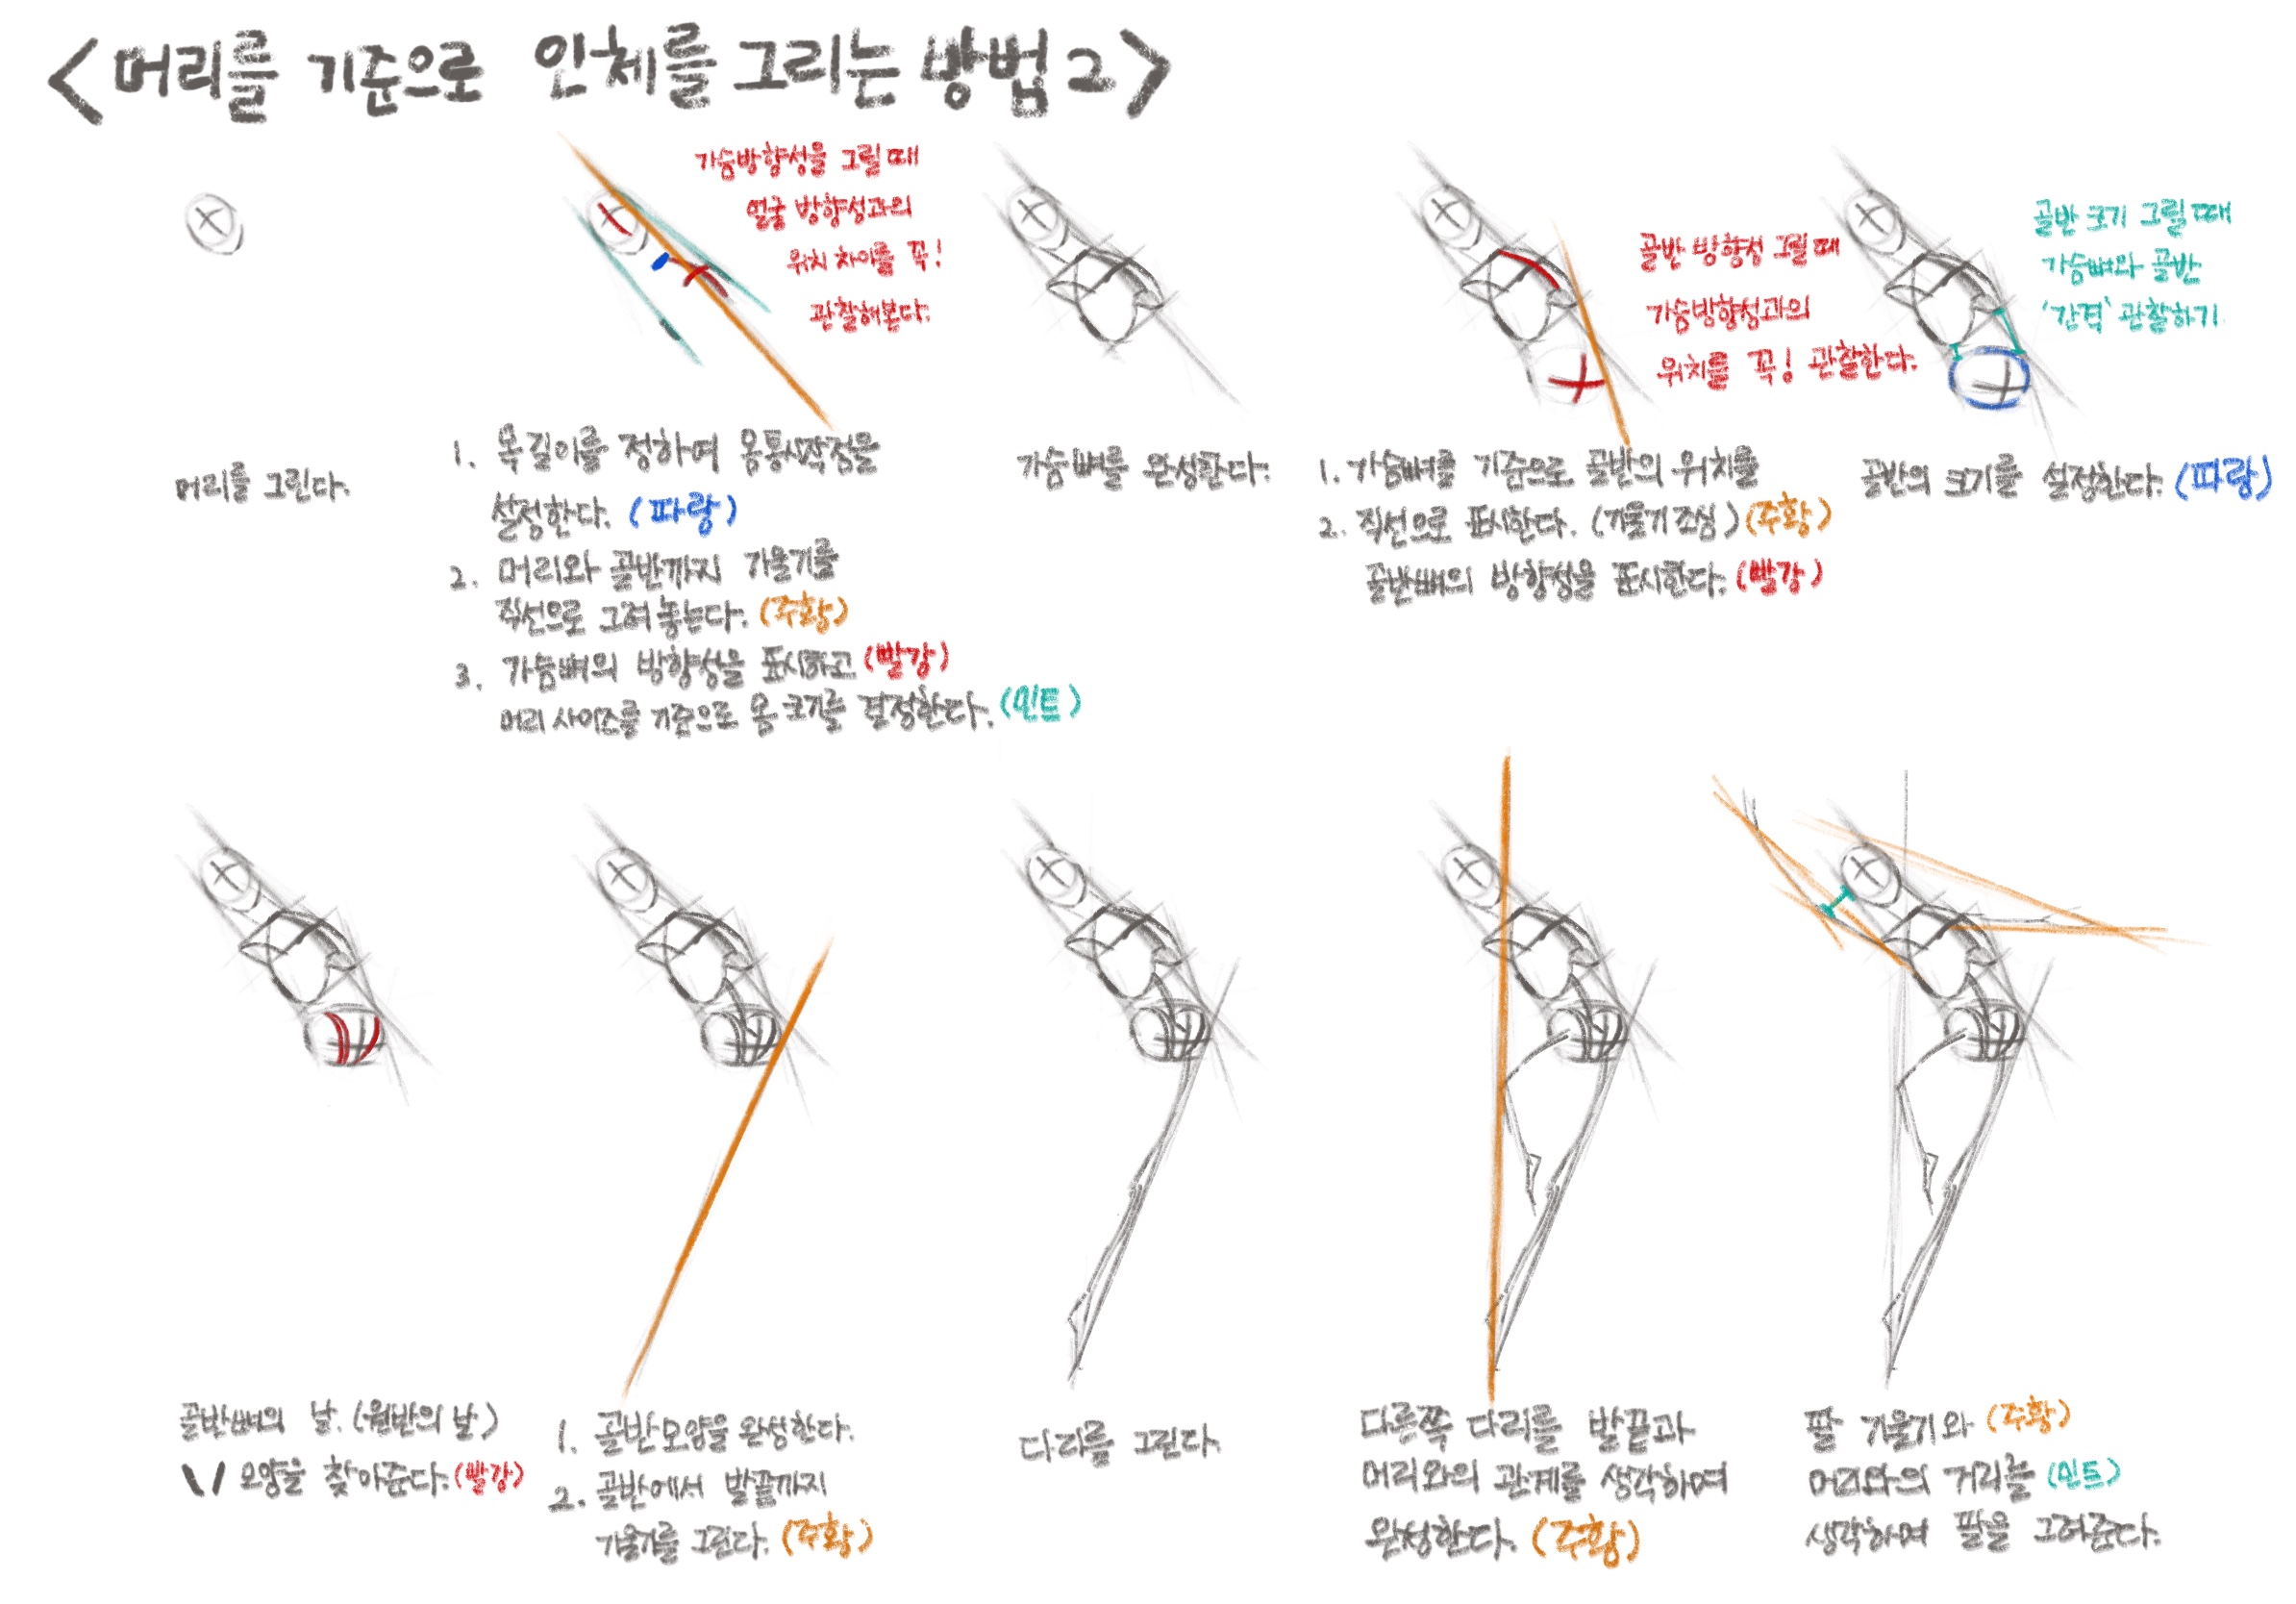 <머리를 기준으로 인체를 그리는 방법 2>
머리를 그린다.
가슴방향성을 그릴때
얼굴 방향성과의
위치 차이를 꼭!
관찰해본다.
1. 목길이를 정하여 몸통시작점을
설정한다. (파랑)
2. 머리와 골반까지 기울기를
직선으로 그려놓는다. (주황)
3. 가슴뼈의 방향성을 표시하고 (빨강)
머리 사이즈를 기준으로 몸 크기를 결정한다. (민트)
가슴뼈를 완성한다.
골반 방향성 그릴때
가슴방향성과의
위치를 꼭! 관찰한다.
1. 가슴뼈를 기준으로 골반의 위치를
2. 직선으로 표시한다. (기울기조심) (주황)
골반뼈의 방향성을 표시한다. (빨강)
골반 크기 그릴때
가슴뼈와 골반
'간격' 관찰하기
골반의 크기를 설정한다. (파랑)
골반뼈의 날. (원반의 날)
\/ 모양을 찾아준다. (빨강)
1. 골반모양을 완성한다.
2. 골반에서 발끝까지
기울기를 그린다. (주황)
다리를 그린다.
다른쪽 다리를 발끝과
머리와의 관계를 생각하며
완성한다. (주황)
팔 기울기와 (주황)
머리와의 거리를 (민트)
생각하며 팔을 그려준다.